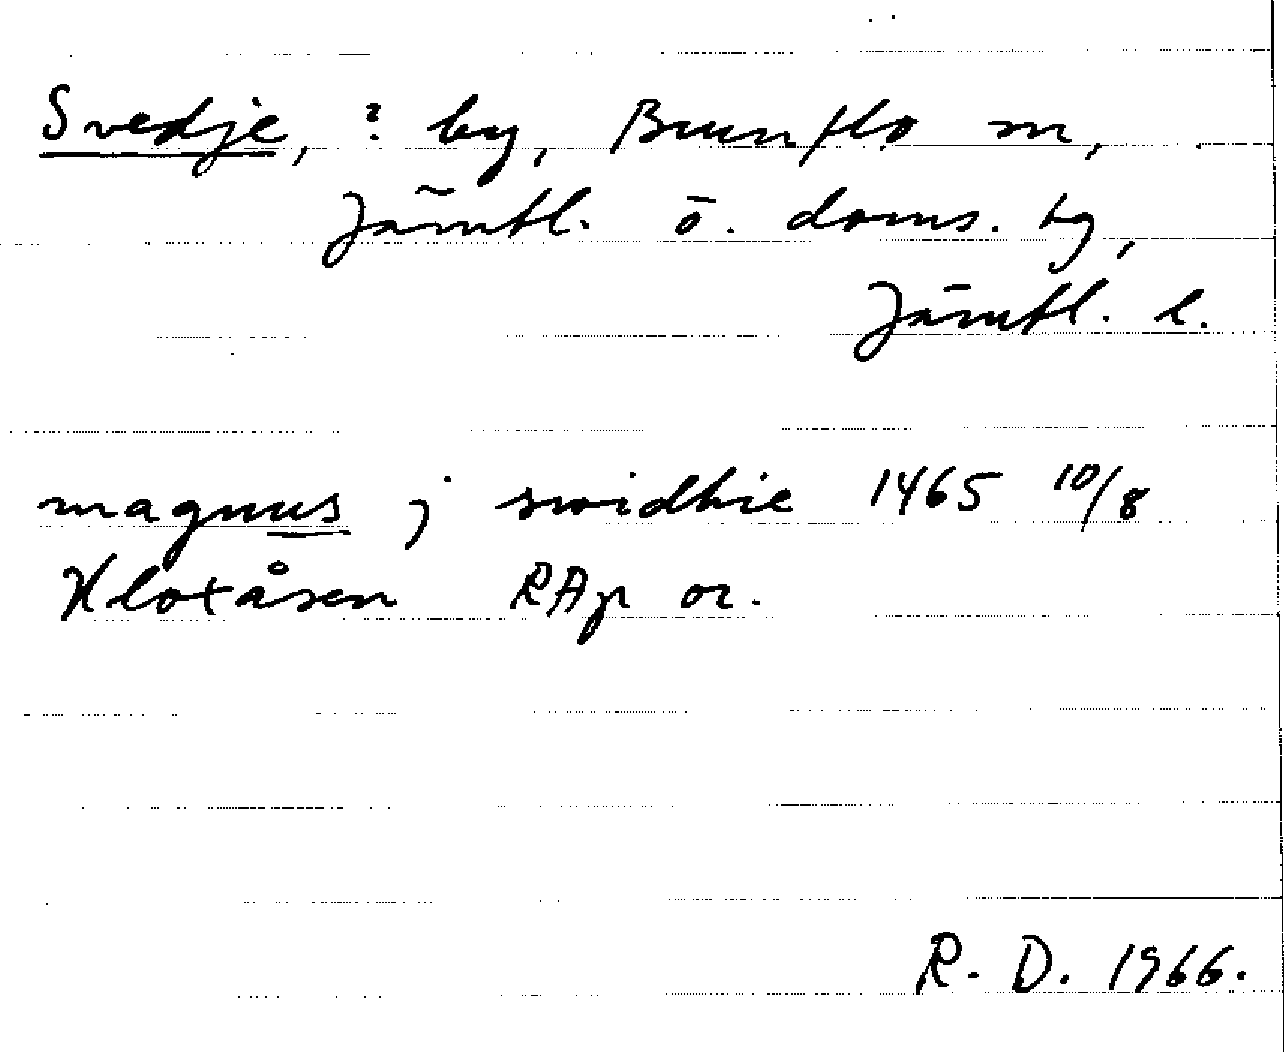 Svedje, ? by, Brunflo sn,
Jämtl. ö. doms. tg,
Jämtl. l.
magnus j swidhie 1465 10/8
Kloxåsen RAp or.
R. D. 1966.